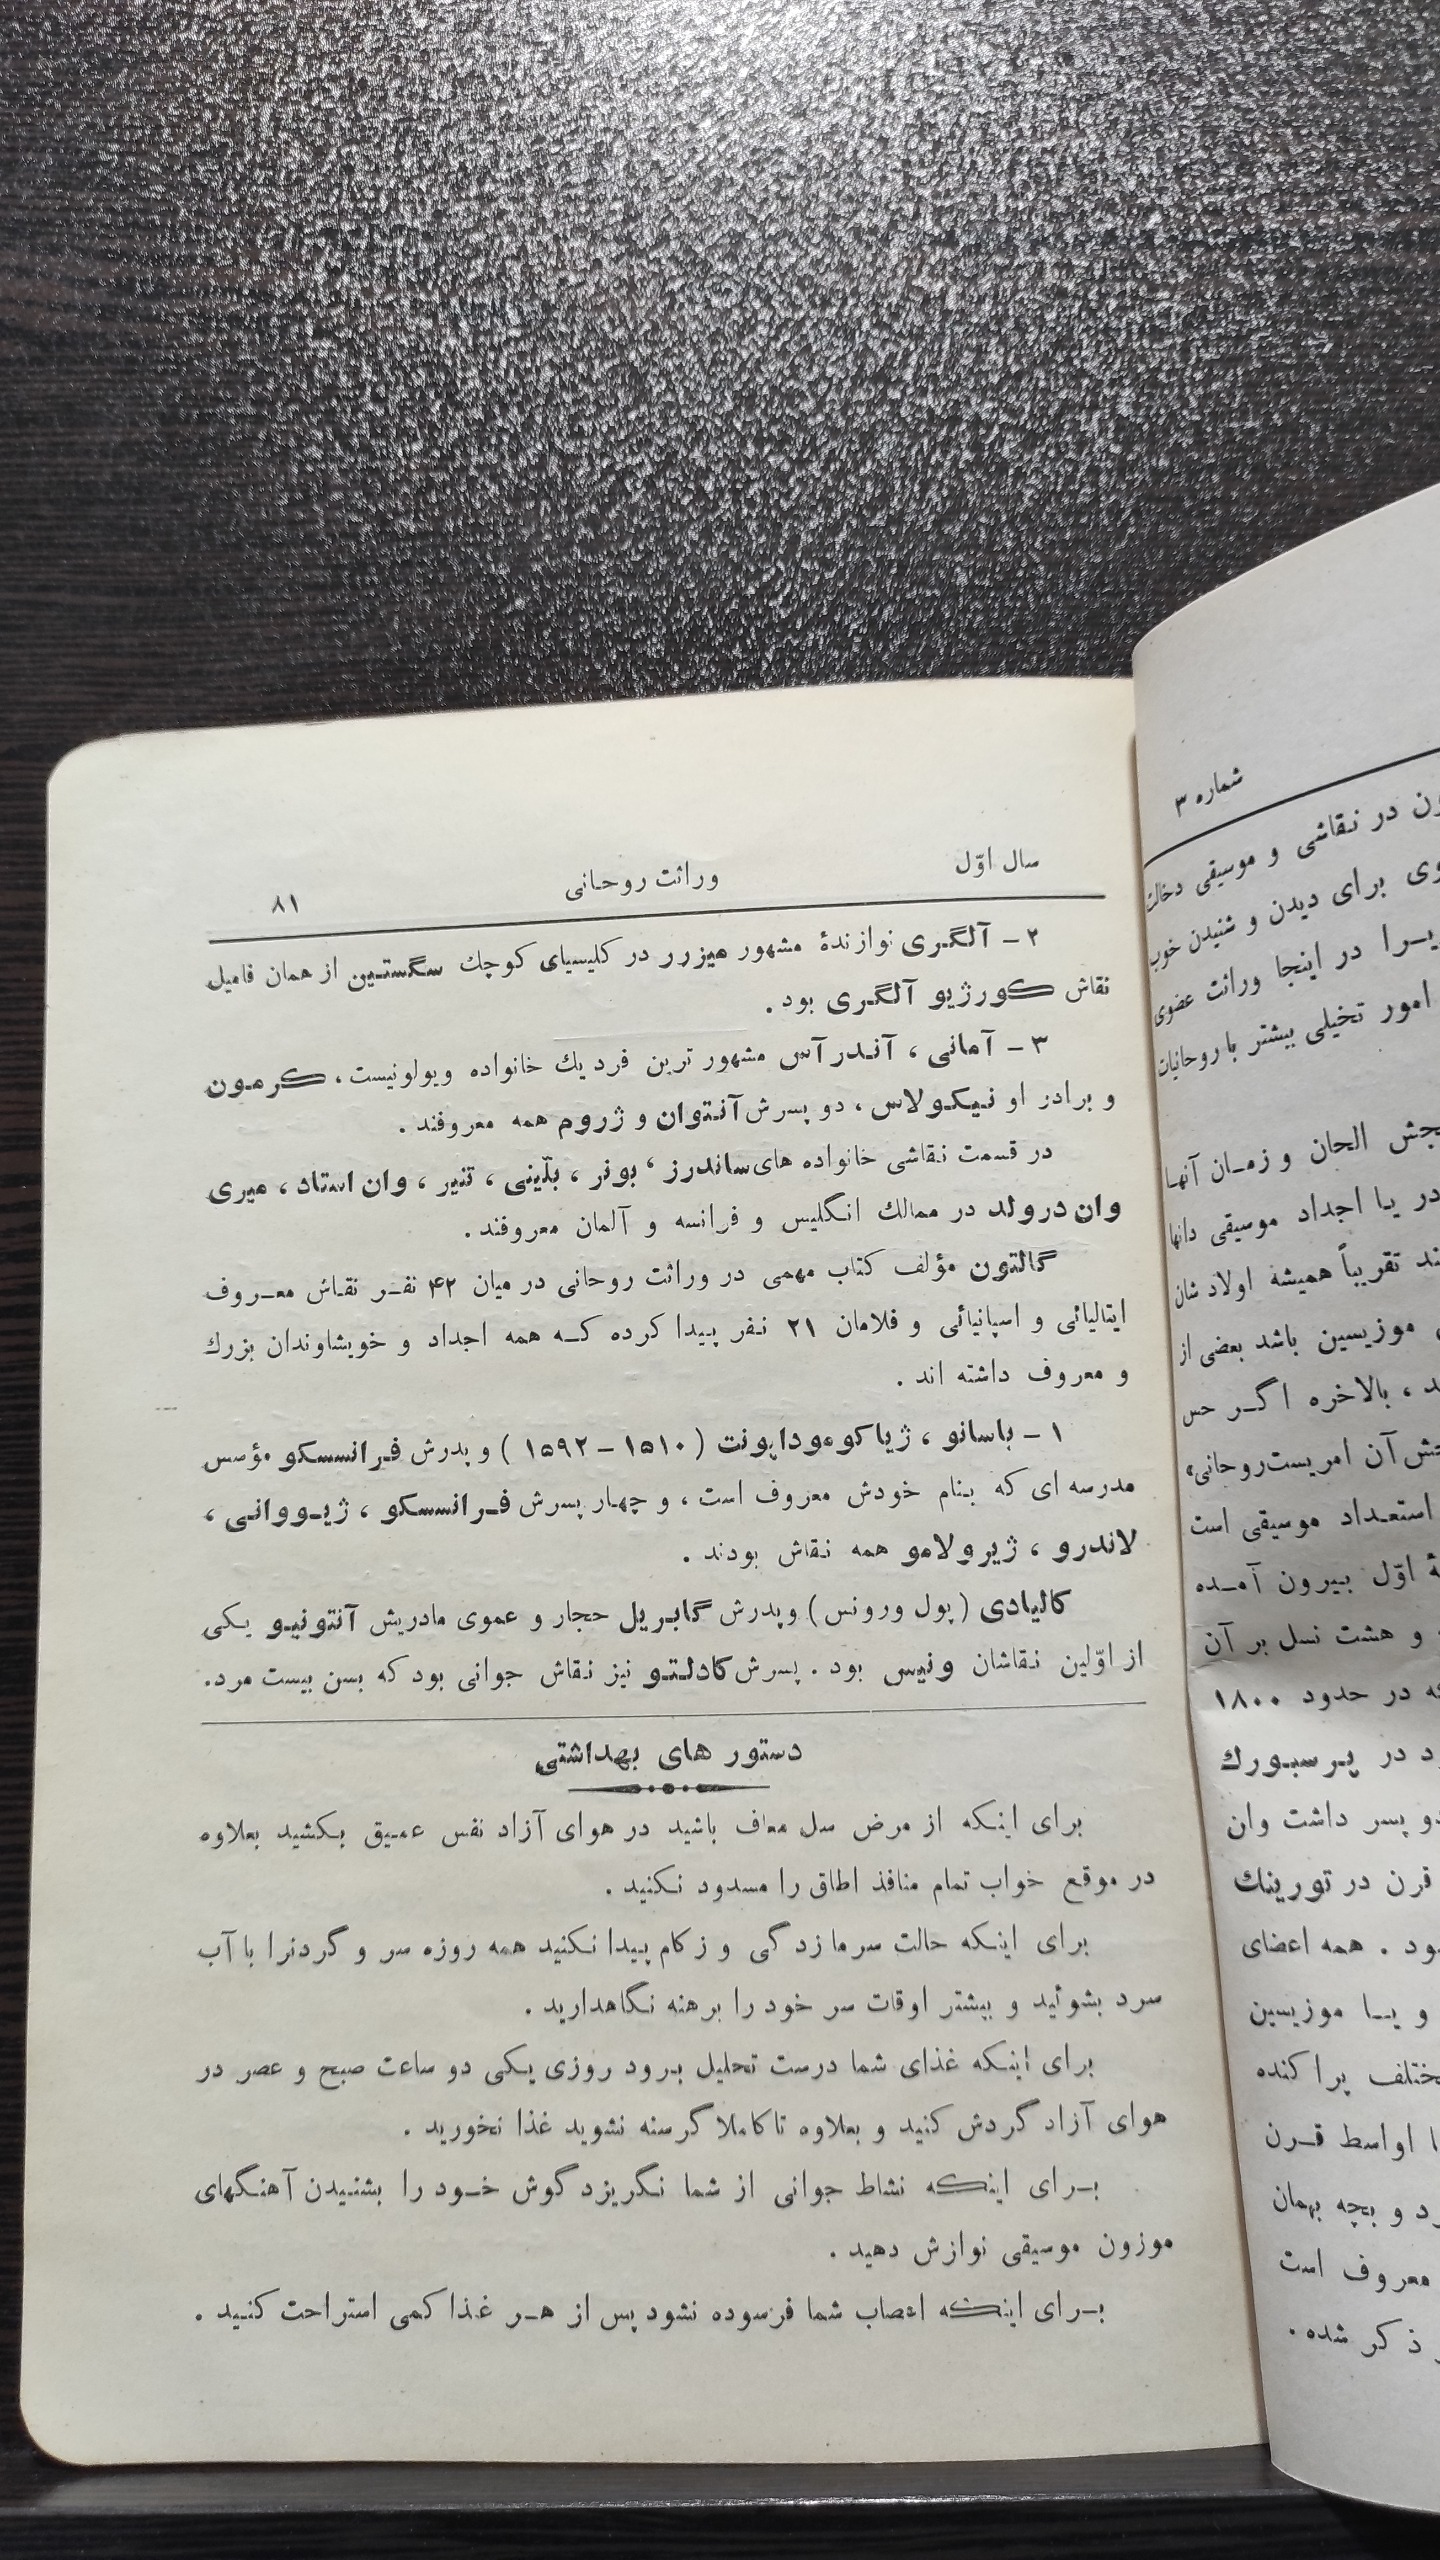 سال اوّل
وراثت روحانی
۸۱
۲ - آلگری نوازندهٔ مشهور میزرر در کلیسیای کوچك سگستین از همان فامیل
نقاش کورژیو آلگری بود .
۳ - آمانی ، آندرآس مشهور ترین فرد یك خانواده ویولونیست ، کرمون
و برادر او نیکولاس ، دو پسرش آنتوان و ژروم همه معروفند .
در قسمت نقاشی خانواده های ساندرز ، بونر ، بلّینی ، تنیر ، وان استاد ، میری
وان درولد در ممالك انگلیس و فرانسه و آلمان معروفند .
گالتون مؤلف کتاب مهمی در وراثت روحانی در میان ۴۲ نفر نقاش معروف
ایتالیائی و اسپانیائی و فلامان ۲۱ نفر پیدا کرده که همه اجداد و خویشاوندان بزرك
و معروف داشته اند .
۱ - باسانو ، ژیاکوموداپونت ( ۱۵۱۰ - ۱۵۹۲ ) و پدرش فرانسسکو مؤسس
مدرسه ای که بنام خودش معروف است ، و چهار پسرش فرانسسکو ، ژیووانی ،
لاندرو ، ژیرولامو همه نقاش بودند .
کالیادی ( پول ورونس ) و پدرش گابریل حجار و عموی مادریش آنتونیو یکی
از اوّلین نقاشان ونیس بود . پسرش کادلتو نیز نقاش جوانی بود که بسن بیست مرد .
دستور های بهداشتی
برای اینکه از مرض سل معاف باشید در هوای آزاد نفس عمیق بکشید بعلاوه
در موقع خواب تمام منافذ اطاق را مسدود نکنید .
برای اینکه حالت سرمازدگی و زکام پیدا نکنید همه روزه سر و گردنرا با آب
سرد بشوئید و بیشتر اوقات سر خود را برهنه نگاهدارید .
برای اینکه غذای شما درست تحلیل برود روزی یکی دو ساعت صبح و عصر در
هوای آزاد گردش کنید و بعلاوه تا کاملا گرسنه نشوید غذا نخورید .
برای اینکه نشاط جوانی از شما نگریزد گوش خود را بشنیدن آهنگهای
موزون موسیقی نوازش دهید .
برای اینکه اعصاب شما فرسوده نشود پس از هر غذا کمی استراحت کنید .
شماره ۳
در نقاشی و موسیقی دخالت
برای دیدن و شنیدن خوب
در اینجا وراثت عضوی
امور تخیلی بیشتر با روحانیات
الحان و زمان آنها
یا اجداد موسیقی دانها
تقریباً همیشه اولاد شان
موزیسین باشد بعضی از
، بالاخره اگر حس
آن امریست روحانی»
استعداد موسیقی است
اوّل بیرون آمده
و هشت نسل بر آن
در حدود ۱۸۰۰
در پرسبورك
پسر داشت وان
قرن در تورینك
. همه اعضای
و یا موزیسین
پراکنده
اواسط قرن
و بچه بهمان
معروف است
ذکر شده .